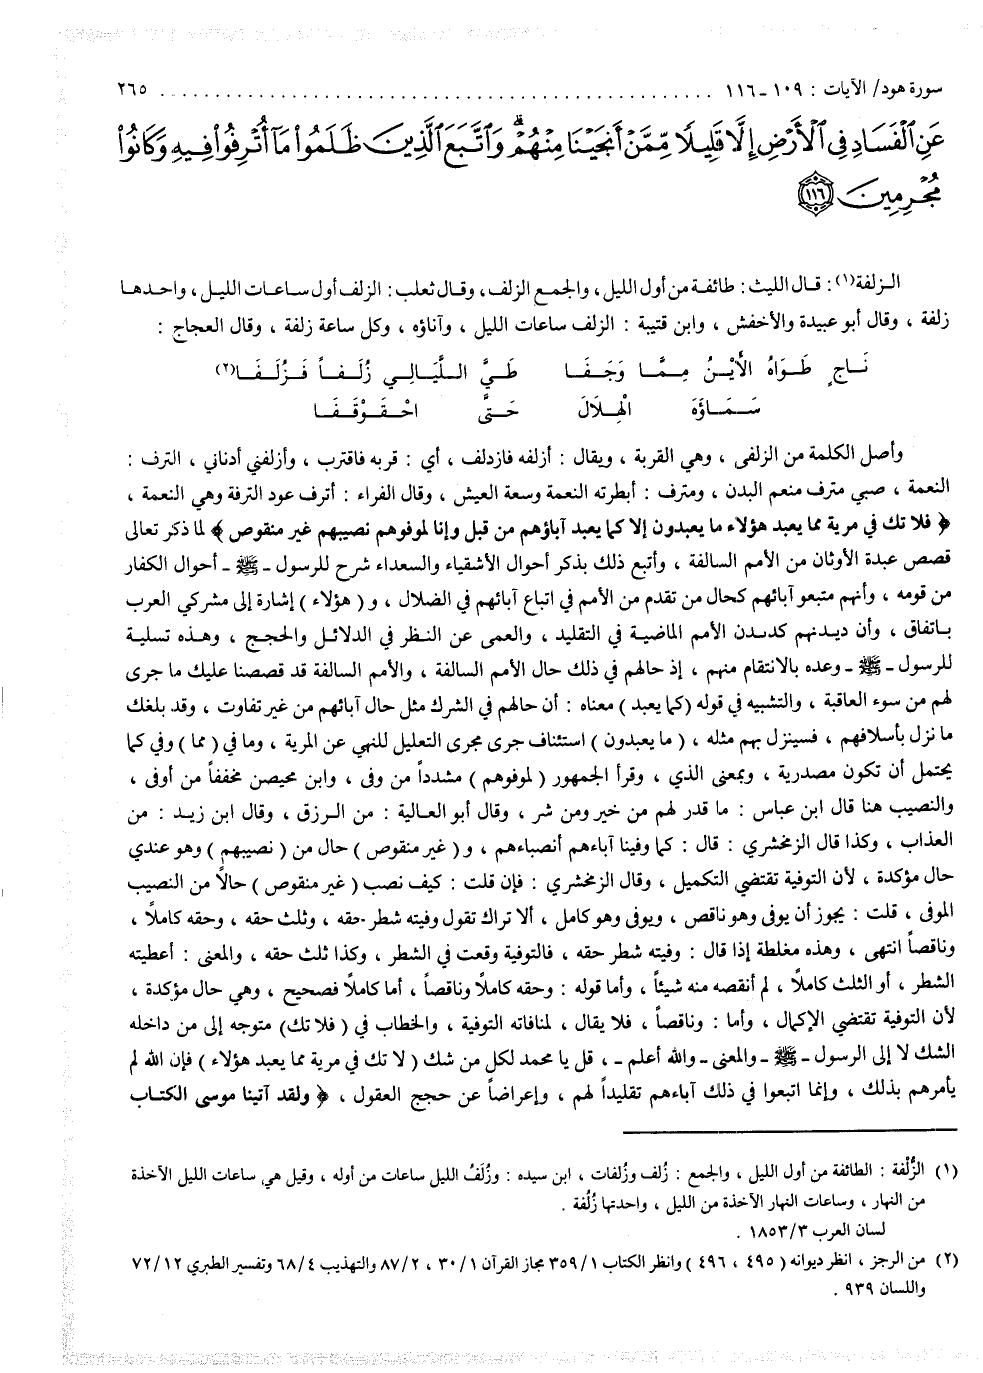 سورة هود/ الآيات : ١٠٩ ـ ١١٦ ........................................ ٢٦٥
عَنِ ٱلْفَسَادِ فِى ٱلْأَرْضِ إِلَّا قَلِيلًا مِّمَّنْ أَنجَيْنَا مِنْهُمْ ۗ وَٱتَّبَعَ ٱلَّذِينَ ظَلَمُوا۟ مَآ أُتْرِفُوا۟ فِيهِ وَكَانُوا۟
مُجْرِمِينَ ١١٦
الـزلفة(١) : قـال الليث : طائفـة من أول الليل ، والجمع الزلف، وقال ثعلب : الزلف أول ساعـات الليـل ، واحـدهـا
زلفة ، وقال أبو عبيدة والأخفش ، وابن قتيبة : الزلف ساعات الليل ، وآناؤه ، وكل ساعة زلفة ، وقال العجاج :
نَـاجٍ طَـوَاهُ الأَيْـنُ مِـمَّـا وَجَـفَـا طَـيَّ الـلَّيَـالِـي زُلَـفـاً فَـزُلَـفَـا(٢)
سَـمَـاوَةَ الْهِـلَالِ حَـتَّى احْـقَـوْقَـفَـا
وأصل الكلمة من الزلفى ، وهي القربة ، ويقال : أزلفه فازدلف ، أي : قربه فاقترب ، وأزلفني أدناني ، الترف :
النعمة ، صبي مترف منعم البدن ، ومترف : أبطرته النعمة وسعة العيش ، وقال الفراء : أترف عود الترفة وهي النعمة ،
﴿ فلا تك في مرية مما يعبد هؤلاء ما يعبدون إلا كما يعبد آباؤهم من قبل وإنا لموفوهم نصيبهم غير منقوص ﴾ لما ذكر تعالى
قصص عبدة الأوثان من الأمم السالفة ، وأتبع ذلك بذكر أحوال الأشقياء والسعداء شرح للرسول ـ ﷺ ـ أحوال الكفار
من قومه ، وأنهم متبعو آبائهم كحال من تقدم من الأمم في اتباع آبائهم في الضلال ، و ( هؤلاء ) إشارة إلى مشركي العرب
بـاتفاق ، وأن ديـدنهم كديـدن الأمم الماضيـة في التقليد ، والعمى عن النـظر في الدلائـل والحجج ، وهـذه تسليـة
للرسول ـ ﷺ ـ وعده بالانتقام منهم ، إذ حالهم في ذلك حال الأمم السالفة ، والأمم السالفة قد قصصنا عليك ما جرى
لهم من سوء العاقبة ، والتشبيه في قوله (كما يعبد ) معناه : أن حالهم في الشرك مثل حال آبائهم من غير تفاوت ، وقد بلغك
ما نزل بأسلافهم ، فسينزل بهم مثله ، ( ما يعبدون ) استئناف جرى مجرى التعليل للنهي عن المرية ، وما في ( مما ) وفي كما
يحتمل أن تكون مصدرية ، وبمعنى الذي ، وقرأ الجمهور ( لموفوهم ) مشدداً من وفى ، وابن محيصن مخففاً من أوفى ،
والنصيب هنا قال ابن عباس : ما قدر لهم من خير ومن شر ، وقال أبو العـالية : من الـرزق ، وقال ابن زيـد : من
العذاب ، وكذا قال الزمخشري : قال : كما وفينا آباءهم أنصباءهم ، و ( غير منقوص ) حال من ( نصيبهم ) وهو عندي
حال مؤكدة ، لأن التوفية تقتضي التكميل ، وقال الزمخشري : فإن قلت : كيف نصب ( غير منقوص ) حالاً من النصيب
الموفى ، قلت : يجوز أن يوفى وهو ناقص ، ويوفى وهو كامل ، ألا تراك تقول وفيته شطر حقه ، وثلث حقه ، وحقه كاملاً ،
وناقصاً انتهى ، وهذه مغلطة إذا قال : وفيته شطر حقه ، فالتوفية وقعت في الشطر ، وكذا ثلث حقه ، والمعنى : أعطيته
الشطر ، أو الثلث كاملاً ، لم أنقصه منه شيئاً ، وأما قوله : وحقه كاملاً وناقصاً ، أما كاملاً فصحيح ، وهي حال مؤكدة ،
لأن التوفية تقتضي الإكمال ، وأما : وناقصاً ، فلا يقال ، لمنافاته التوفية ، والخطاب في ( فلا تك ) متوجه إلى من داخله
الشك لا إلى الرسول ـ ﷺ ـ والمعنى ـ والله أعلم ـ ، قل يا محمد لكل من شك ( لا تك في مرية مما يعبد هؤلاء ) فإن الله لم
يأمرهم بذلك ، وإنما اتبعوا في ذلك آباءهم تقليداً لهم ، وإعراضاً عن حجج العقول ، ﴿ ولقد آتينا موسى الكتـاب
(١) الزُّلْفة : الطائفة من أول الليل ، والجمع : زُلف وزُلفات ، ابن سيده : وزُلَفُ الليل ساعات من أوله ، وقيل هي ساعات الليل الآخذة
من النهار ، وساعات النهار الآخذة من الليل ، واحدتها زُلْفة .
لسان العرب ١٨٥٣/٣ .
(٢) من الرجز ، انظر ديوانه ( ٤٩٥ ، ٤٩٦ ) وانظر الكتاب ٣٥٩/١ مجاز القرآن ٣٠/١ ، ٨٧/٢ والتهذيب ٦٨/٤ وتفسير الطبري ٧٢/١٢
واللسان ٩٣٩ .